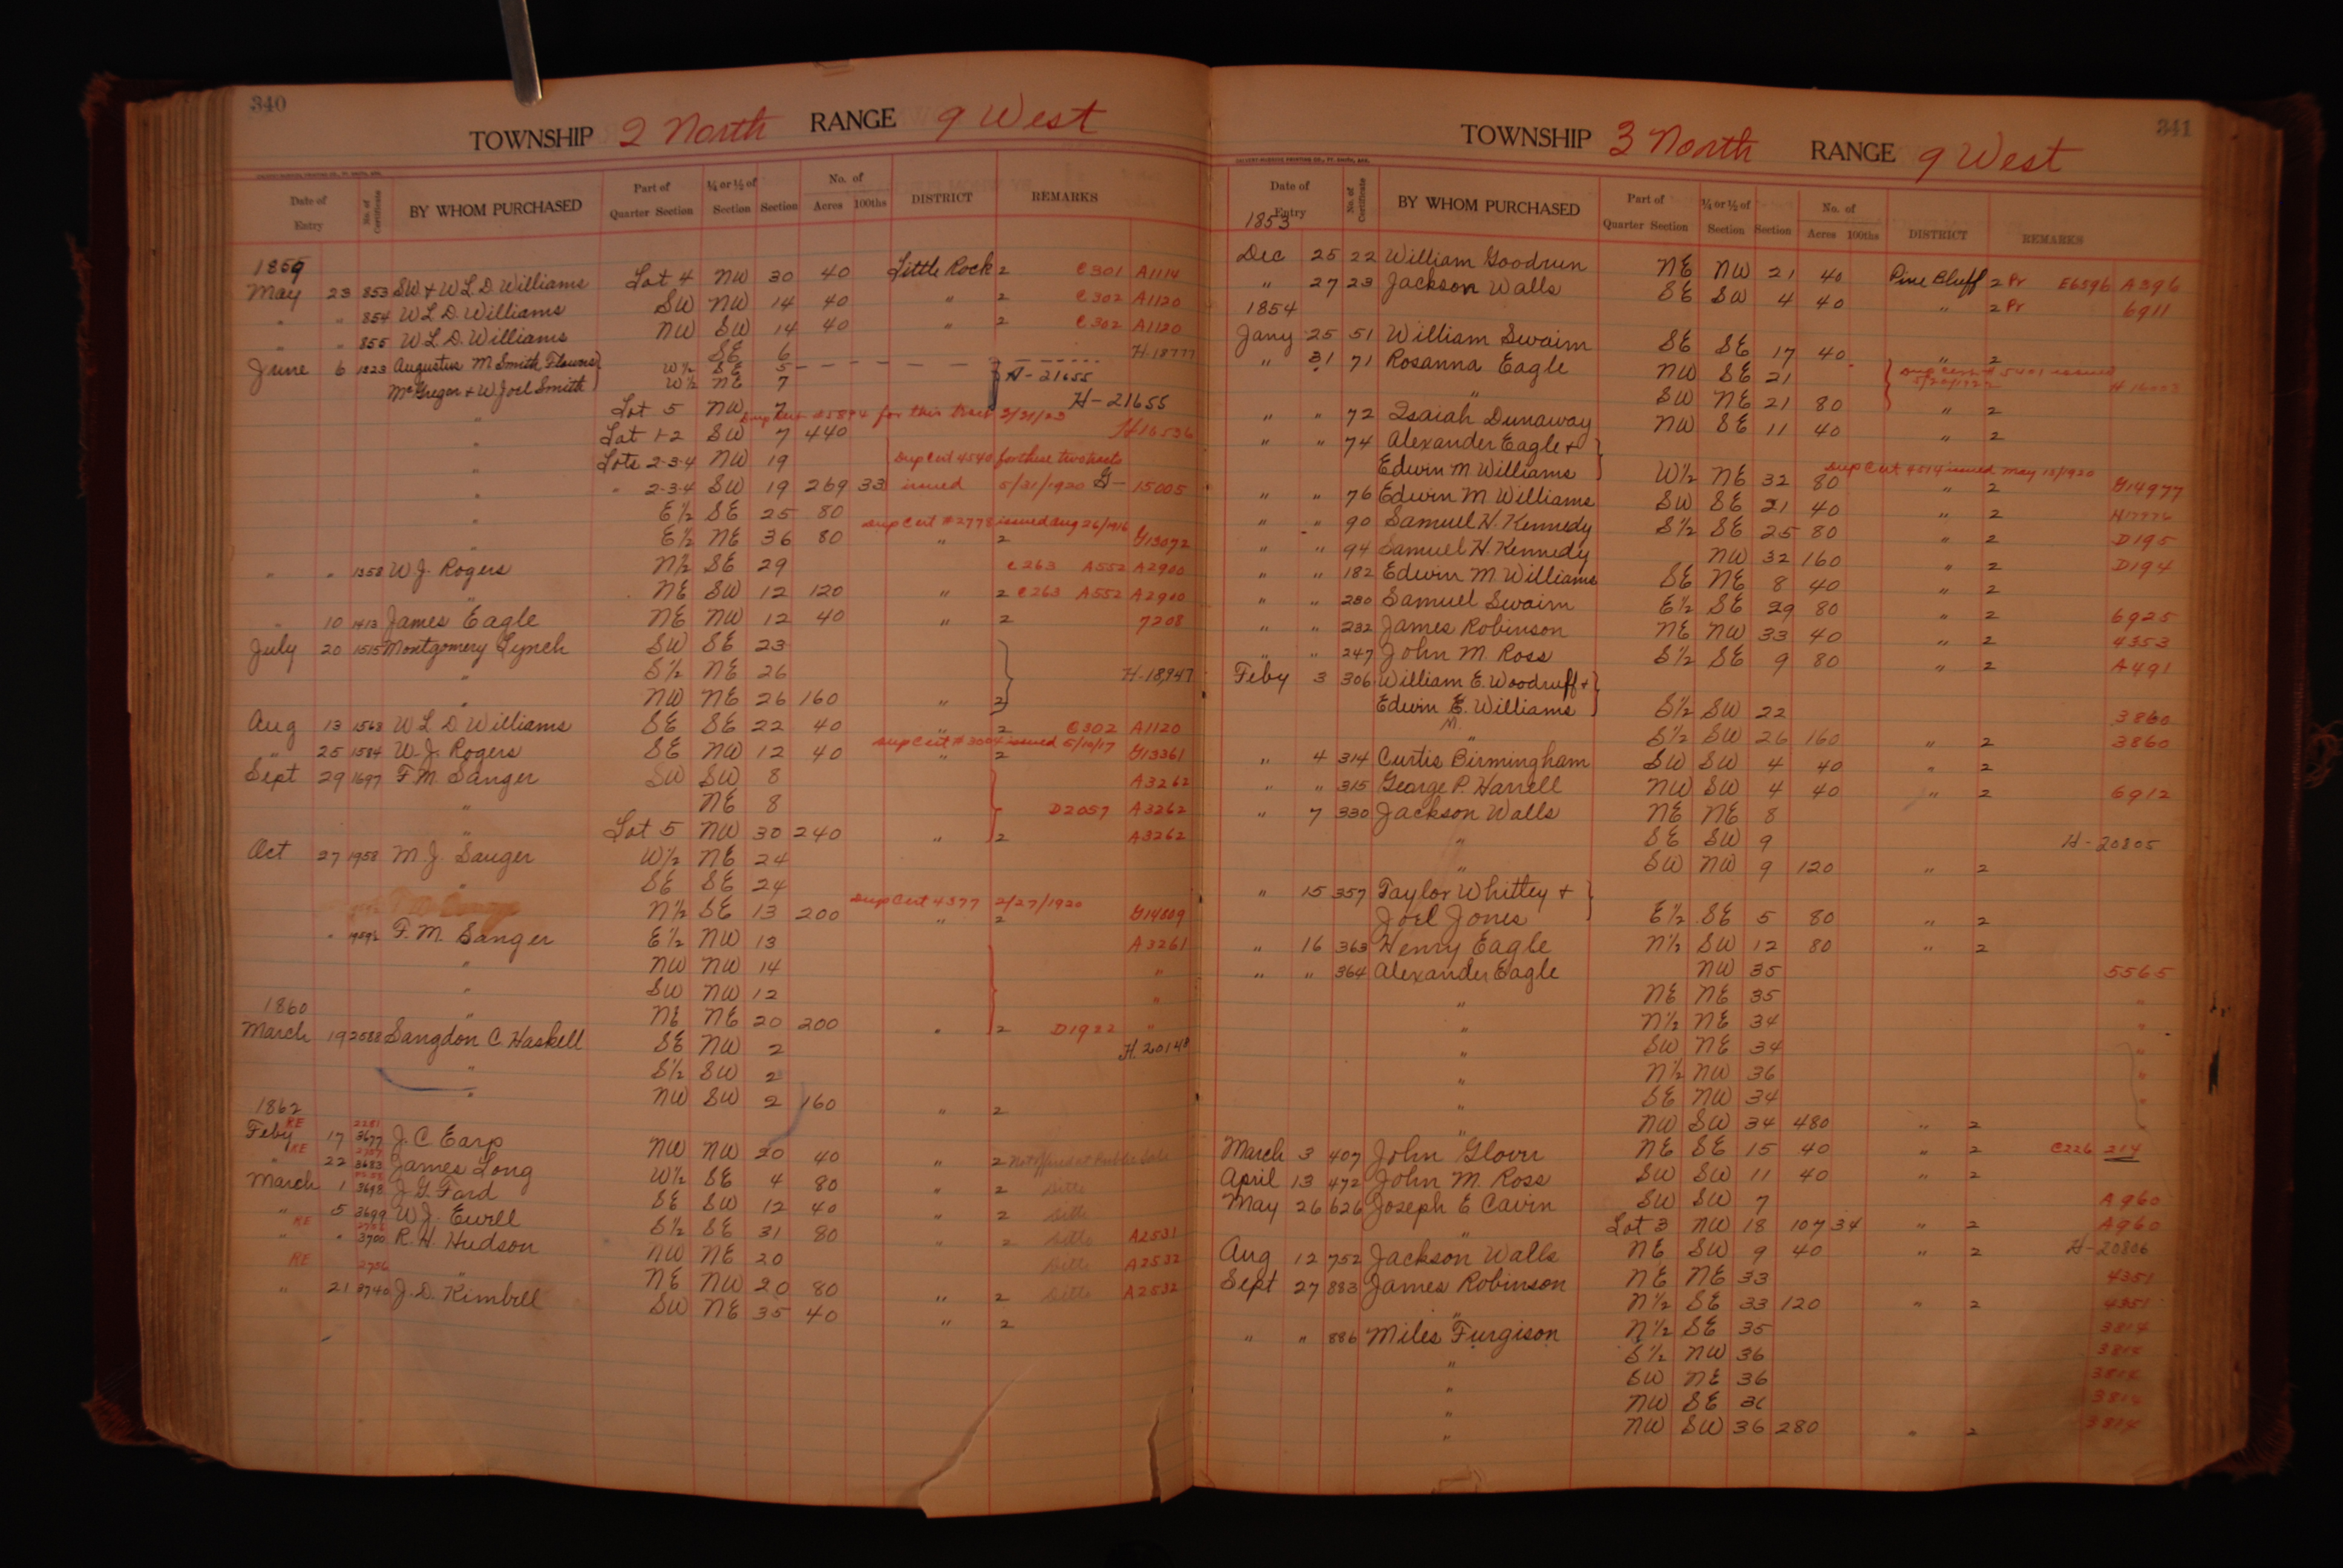 340
TOWNSHIP 2 North RANGE 9 West
Date of Entry No. of Certificate BY WHOM PURCHASED Part of Quarter Section ¼ or ½ of Section Section No. of Acres 100ths DISTRICT REMARKS
1859
May 23 853 SW & W L. D. Williams Lot 4 NW 30 40 Little Rock 2 C301 A1114
" " 854 W L D. Williams SW NW 14 40 " 2 C302 A1120
" " 855 W L. D. Williams NW SW 14 40 " 2 C302 A1120
SE 6 H-18777
June 6 1323 Augustus M Smith Flowers W½ SE 5 H-21655
McGregor & W Joel Smith W½ NE 7 H-21655
" Lot 5 NW 7 Dup Cert 5894 for this tract 3/21/23
" Lot 1-2 SW 7 440 H16536
" Lots 2-3-4 NW 19 Dup Cert 4540 for these two tracts
" " 2-3-4 SW 19 269 33 issued 5/31/1920 G-15005
" E½ SE 25 80 Dup Cert #2778 issued Aug 26/1916
" E½ NE 36 80 " 2 G13072
" " 1358 W J. Rogers N½ SE 29 C263 A552 A2900
" NE SW 12 120 " 2 C263 A552 A2900
" 10 1413 James Eagle NE NW 12 40 " 2 7208
July 20 1515 Montgomery Lynch SW SE 23
" S½ NE 26 H-18,947
" NW NE 26 160 " 2
Aug 13 1563 W L D Williams SE SE 22 40 " 2 C302 A1120
Dup Cert #3004 issued 5/10/17
" 25 1584 W. J. Rogers SE NW 12 40 " 2 G13361
Sept 29 1697 F. M. Sanger SW SW 8 A3262
" NE 8 D2057 A3262
" Lot 5 NW 30 240 " 2 A3262
Oct 27 1958 M. J. Sanger W½ NE 24
" SE SE 24
Dup Cert 4377 2/27/1920
N½ SE 13 200 " 2 G14809
" F. M. Sanger E½ NW 13 A3261
" NW NW 14 "
" SW NW 12 "
1860
" NE NE 20 200 " 2 D1922 "
March 19 2588 Langdon C. Haskell SE NW 2 H.20148
" S½ SW 2
" NW SW 2 160 " 2
1862
RE 2281
Feby 17 3677 J. C Earp NW NW 20 40 " 2 Not offered at Public Sale
RE
" 22 3683 James Long W½ SE 4 80 " 2 Ditto
March 1 3698 J. G. Ford SE SW 12 40 " 2 Ditto
" 5 3699 W J. Ewell S½ SE 31 80 " 2 Ditto A2531
RE
" " 3700 R. H. Hudson NW NE 20 Ditto A2532
RE 2786
" NE NW 20 80 " 2 Ditto A2532
" 21 3740 J. D. Kimbell SW NE 35 40 " 2
341
TOWNSHIP 3 North RANGE 9 West
Date of Entry No. of Certificate BY WHOM PURCHASED Part of Quarter Section ¼ or ½ of Section Section No. of Acres 100ths DISTRICT REMARKS
1853
Dec 25 22 William Goodrum NE NW 21 40 Pine Bluff 2 Pr E6596 A396
" 27 23 Jackson Walls SE SW 4 40 " 2 Pr 6911
1854
Jany 25 51 William Swaim SE SE 17 40 " 2
" 31 71 Rosanna Eagle NW SE 21 Dup Cert # 5401 issued 5/20/1922
" SW NE 21 80 " 2
" " 72 Isaiah Dunaway NW SE 11 40 " 2
" " 74 Alexander Eagle &
Edwin M Williams W½ NE 32 80 Dup Cert 4514 issued May 13/1920 " 2 G14977
" " 76 Edwin M Williams SW SE 21 40 " 2
" " 90 Samuel H. Kennedy S½ SE 25 80 " 2 D195
" " 94 Samuel H. Kennedy NW 32 160 " 2 D194
" " 182 Edwin M Williams SE NE 8 40 " 2
" " 230 Samuel Swaim E½ SE 29 80 " 2 6925
" " 232 James Robinson NE NW 33 40 " 2 4353
" " 247 John M. Ross S½ SE 9 80 " 2 A491
Feby 3 306 William E. Woodruff &
Edwin E. Williams S½ SW 22 3860
M.
" S½ SW 26 160 " 2 3860
" 4 314 Curtis Birmingham SW SW 4 40 " 2
" " 315 George P. Harrell NW SW 4 40 " 2 6912
" 7 330 Jackson Walls NE NE 8
" SE SW 9 H-20805
" SW NW 9 120 " 2
" 15 357 Taylor Whitley &
Joel Jones E½ SE 5 80 " 2
" 16 363 Henry Eagle N½ SW 12 80 " 2
" " 364 Alexander Eagle NW 35 5565
" NE NE 35 "
" N½ NE 34 "
" SW NE 34 "
" N½ NW 36 "
" SE NW 34 "
" NW SW 34 480 " 2
March 3 407 John Glover NE SE 15 40 " 2 C226 214
April 13 472 John M. Ross SW SW 11 40 " 2
May 26 626 Joseph E Cavin SW SW 7 A960
" Lot 3 NW 18 107 34 " 2 A960
Aug 12 752 Jackson Walls NE SW 9 40 " 2 H-20806
Sept 27 883 James Robinson NE NE 33 4351
" N½ SE 33 120 " 2 4351
" " 886 Miles Furgison N½ SE 35 3814
" S½ NW 36 3814
" SW NE 36 3814
" NW SE 36 3814
" NW SW 36 280 " 2 3814